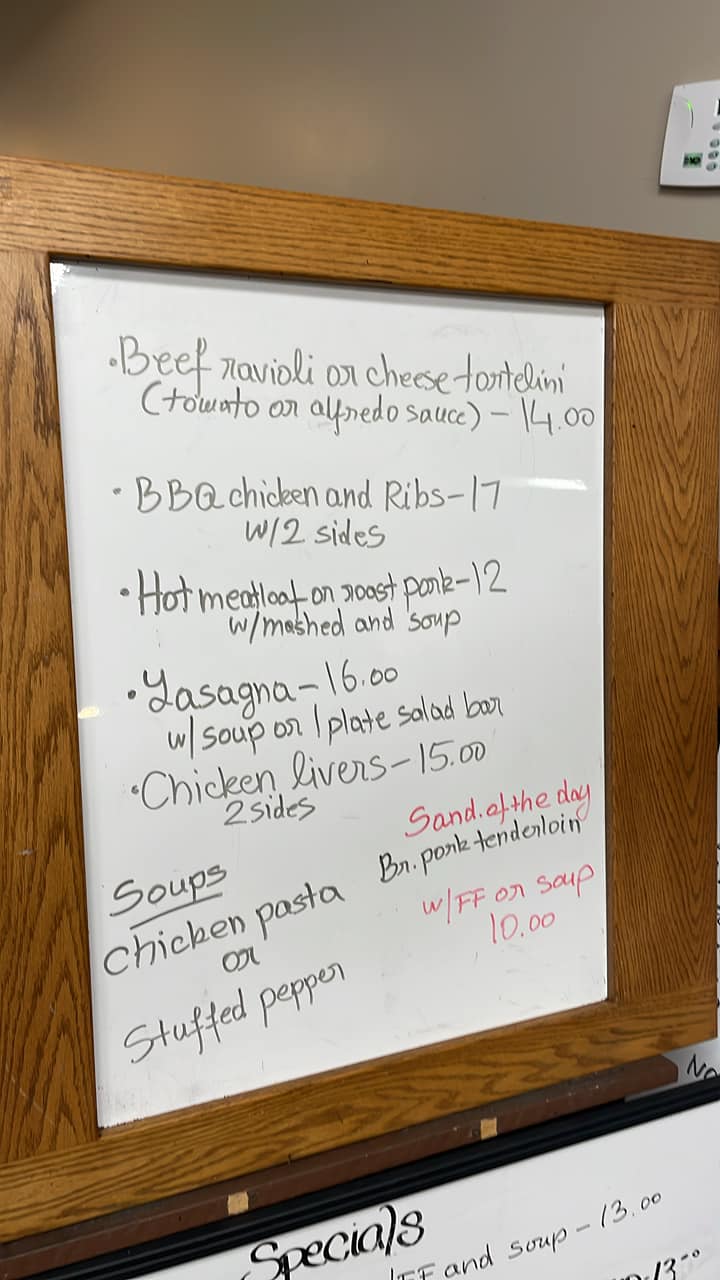 ·Beef ravioli or cheese tortelini
(tomato or alfredo sauce) - 14.00
· BBQ chicken and Ribs - 17
w/2 sides
· Hot meatloaf or roast pork - 12
w/mashed and soup
· Lasagna - 16.00
w/soup or 1 plate salad bar
· Chicken livers - 15.00
2 sides
Sand. of the day
Br. pork tenderloin
w/FF or soup
10.00
Soups
Chicken pasta
or
Stuffed pepper
Specials
FF and soup - 13.00